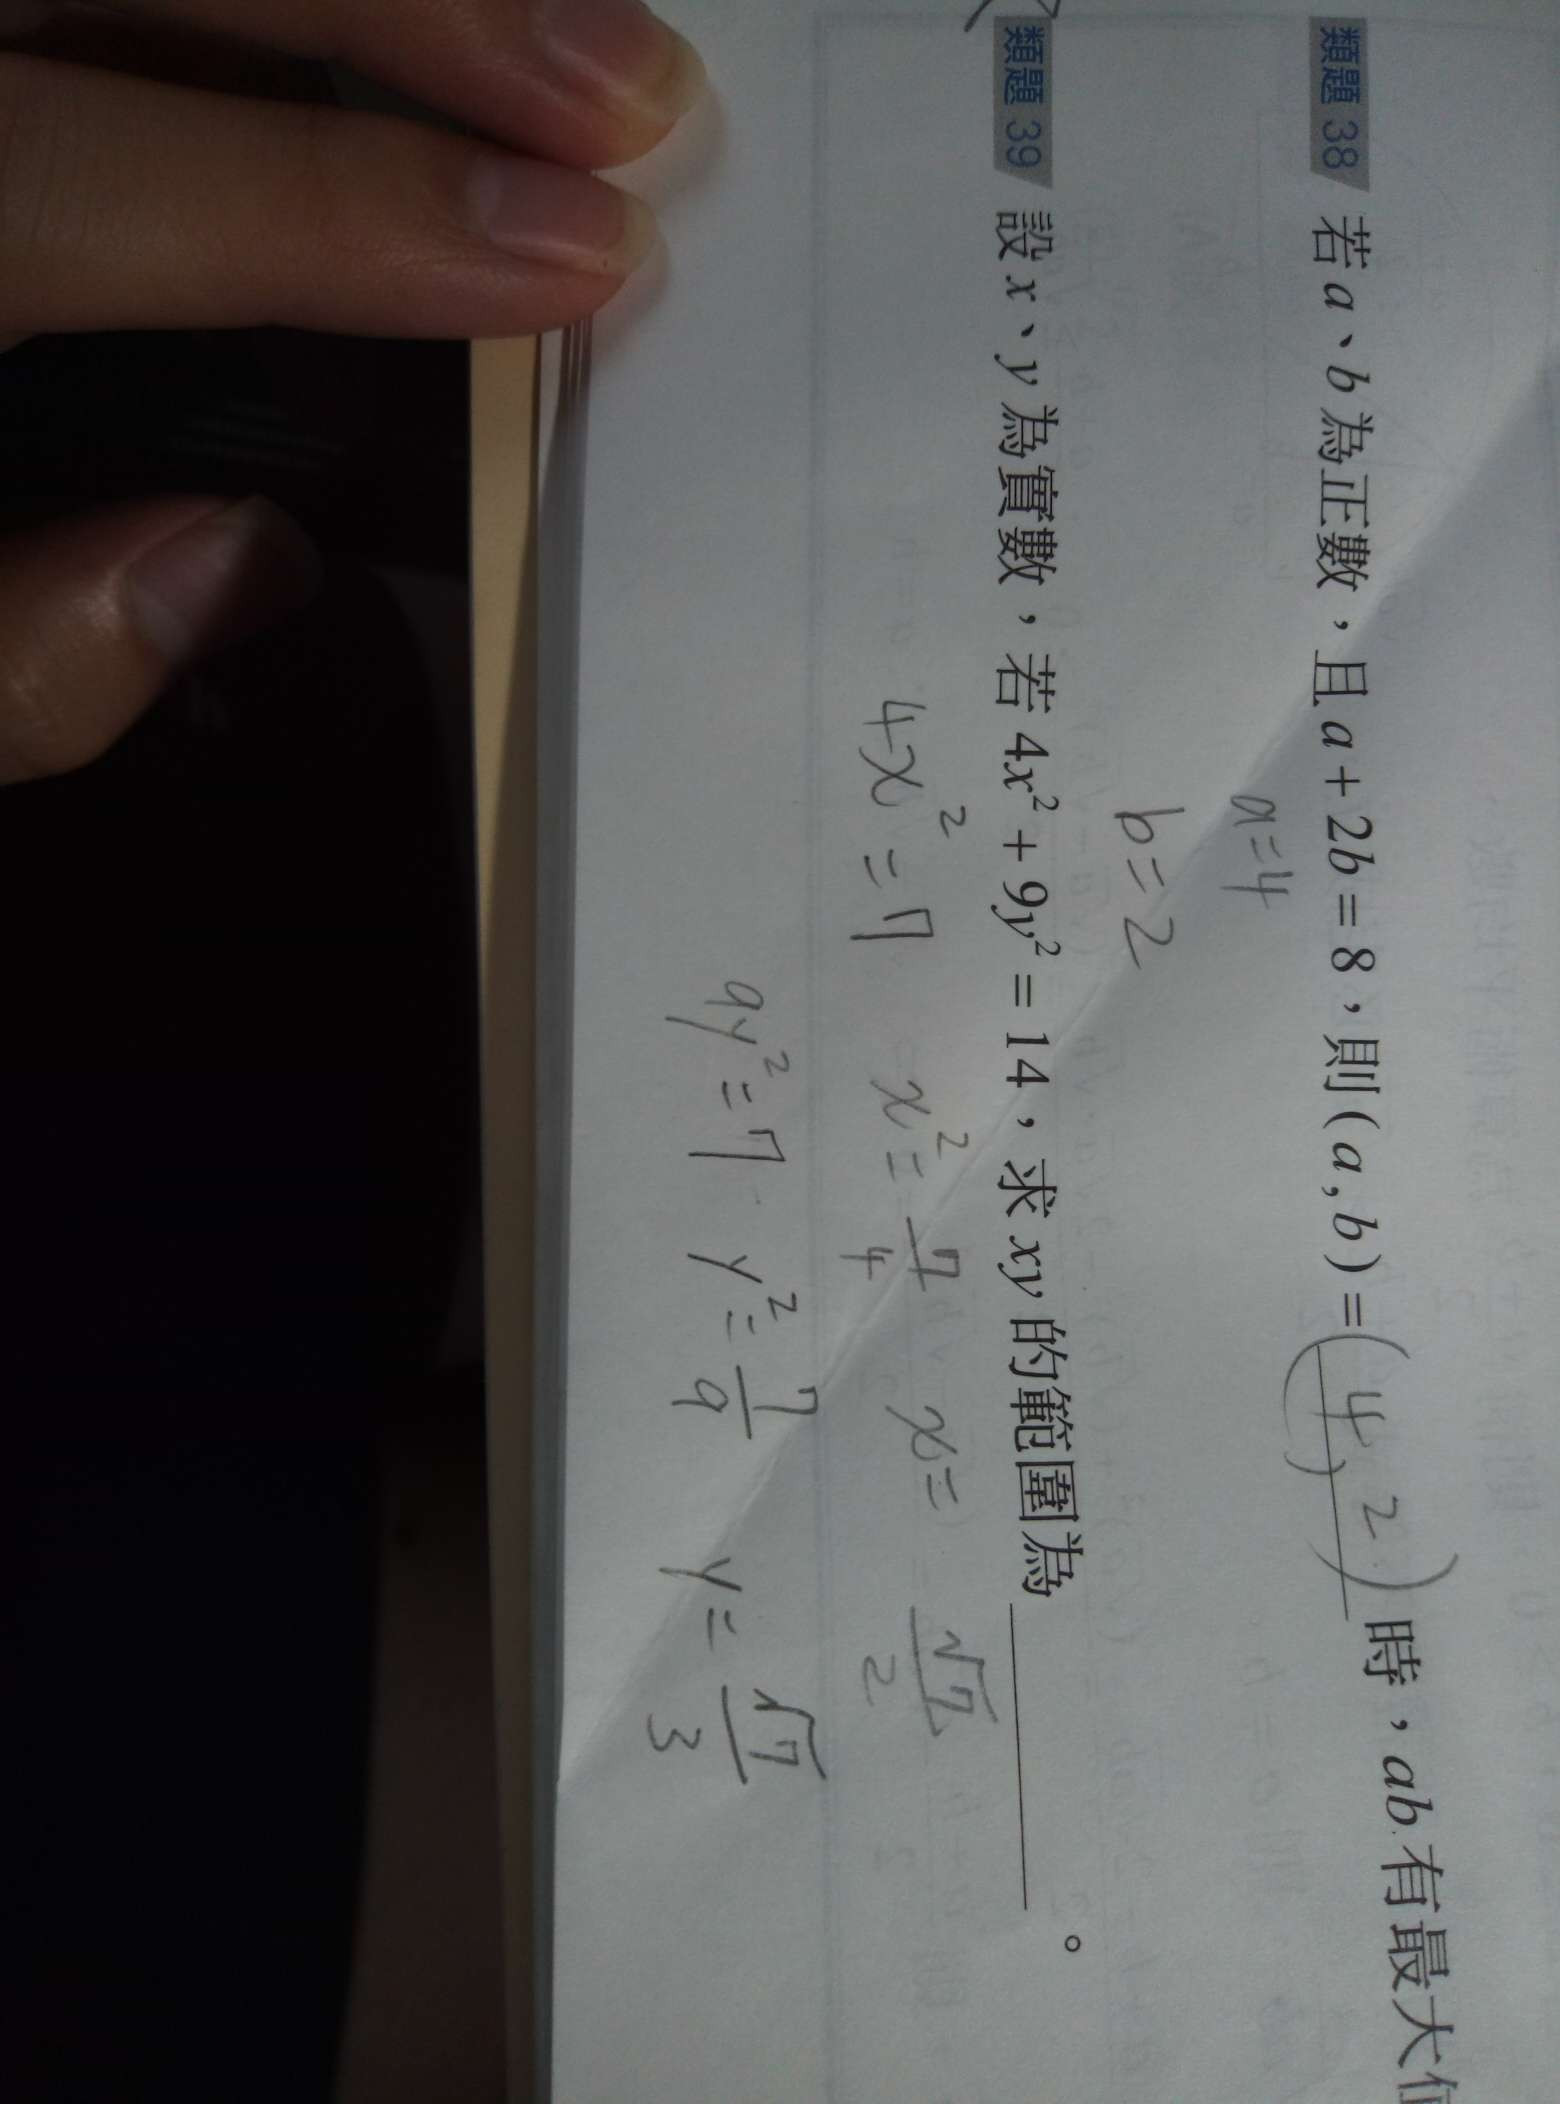 類題 38 若 a、b 為正數，且 a + 2b = 8，則 (a, b) = (4, 2) 時，ab 有最大
a=4
b=2
類題 39 設 x、y 為實數，若 4x² + 9y² = 14，求 xy 的範圍為＿＿＿＿。
4x² = 7 x² = 7/4 x = √7/2
9y² = 7 y² = 7/9 y = √7/3